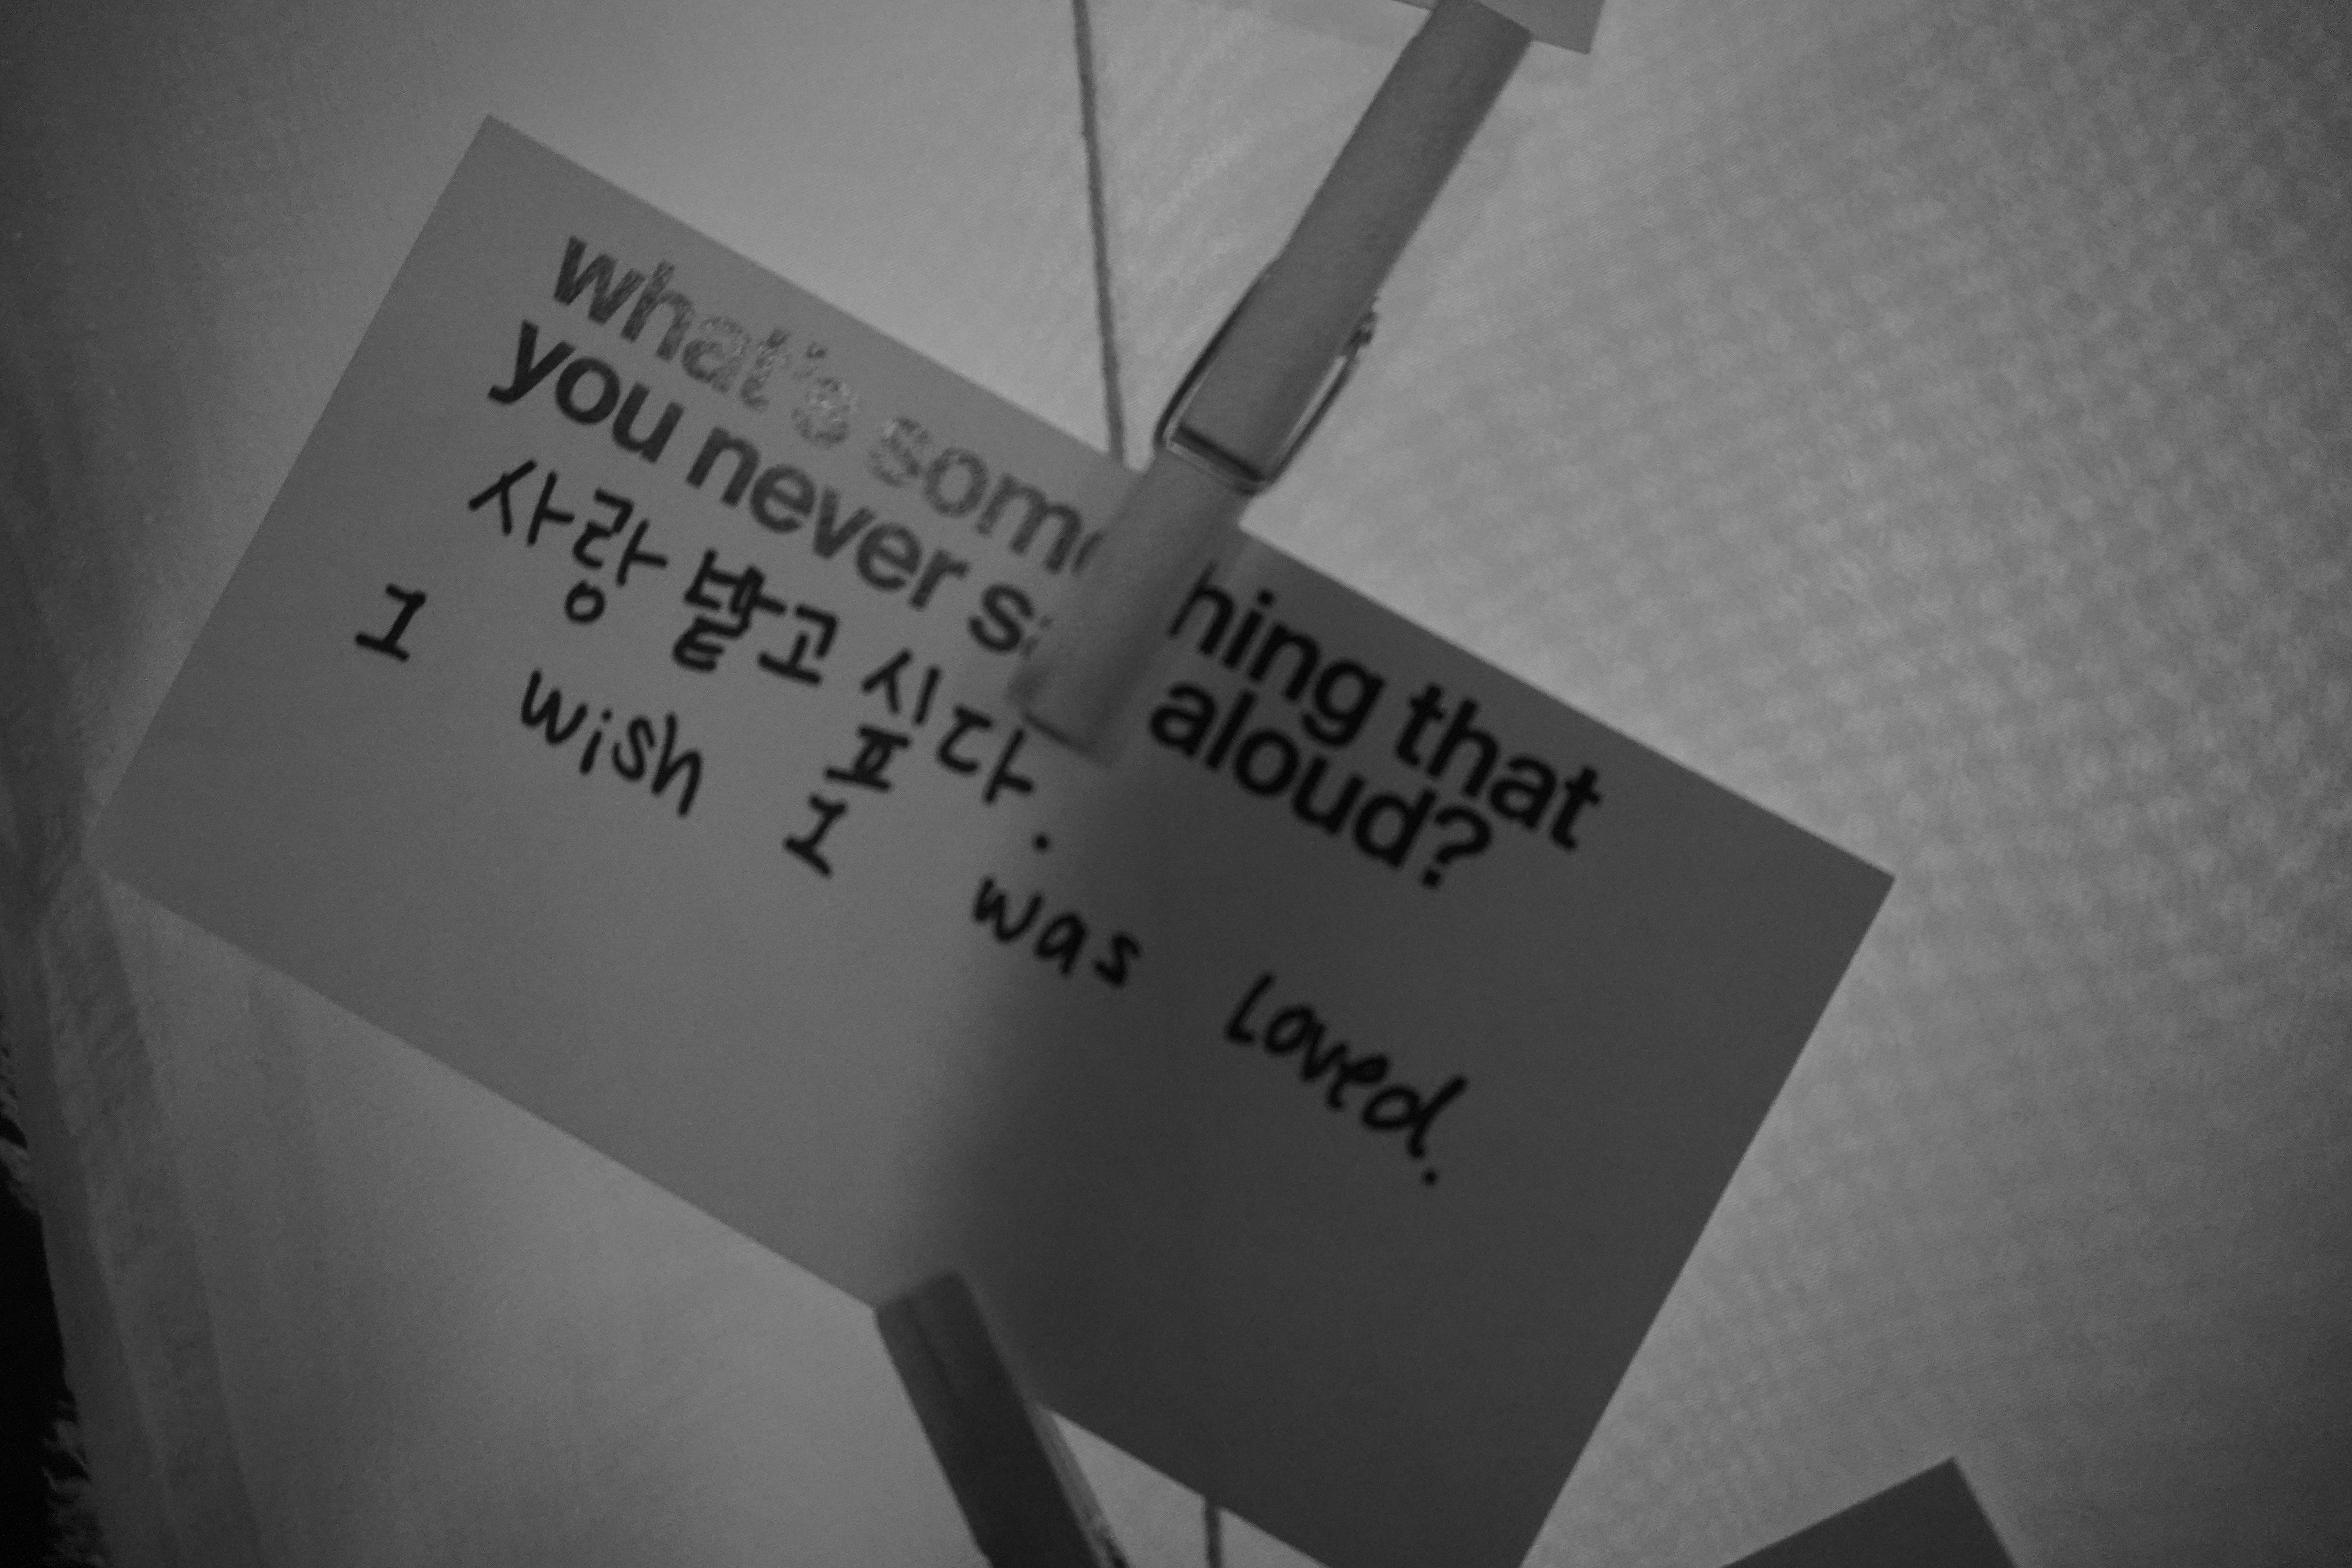 what's something that
you never say aloud?
사랑 받고 시프다.
I wish I was Loved.